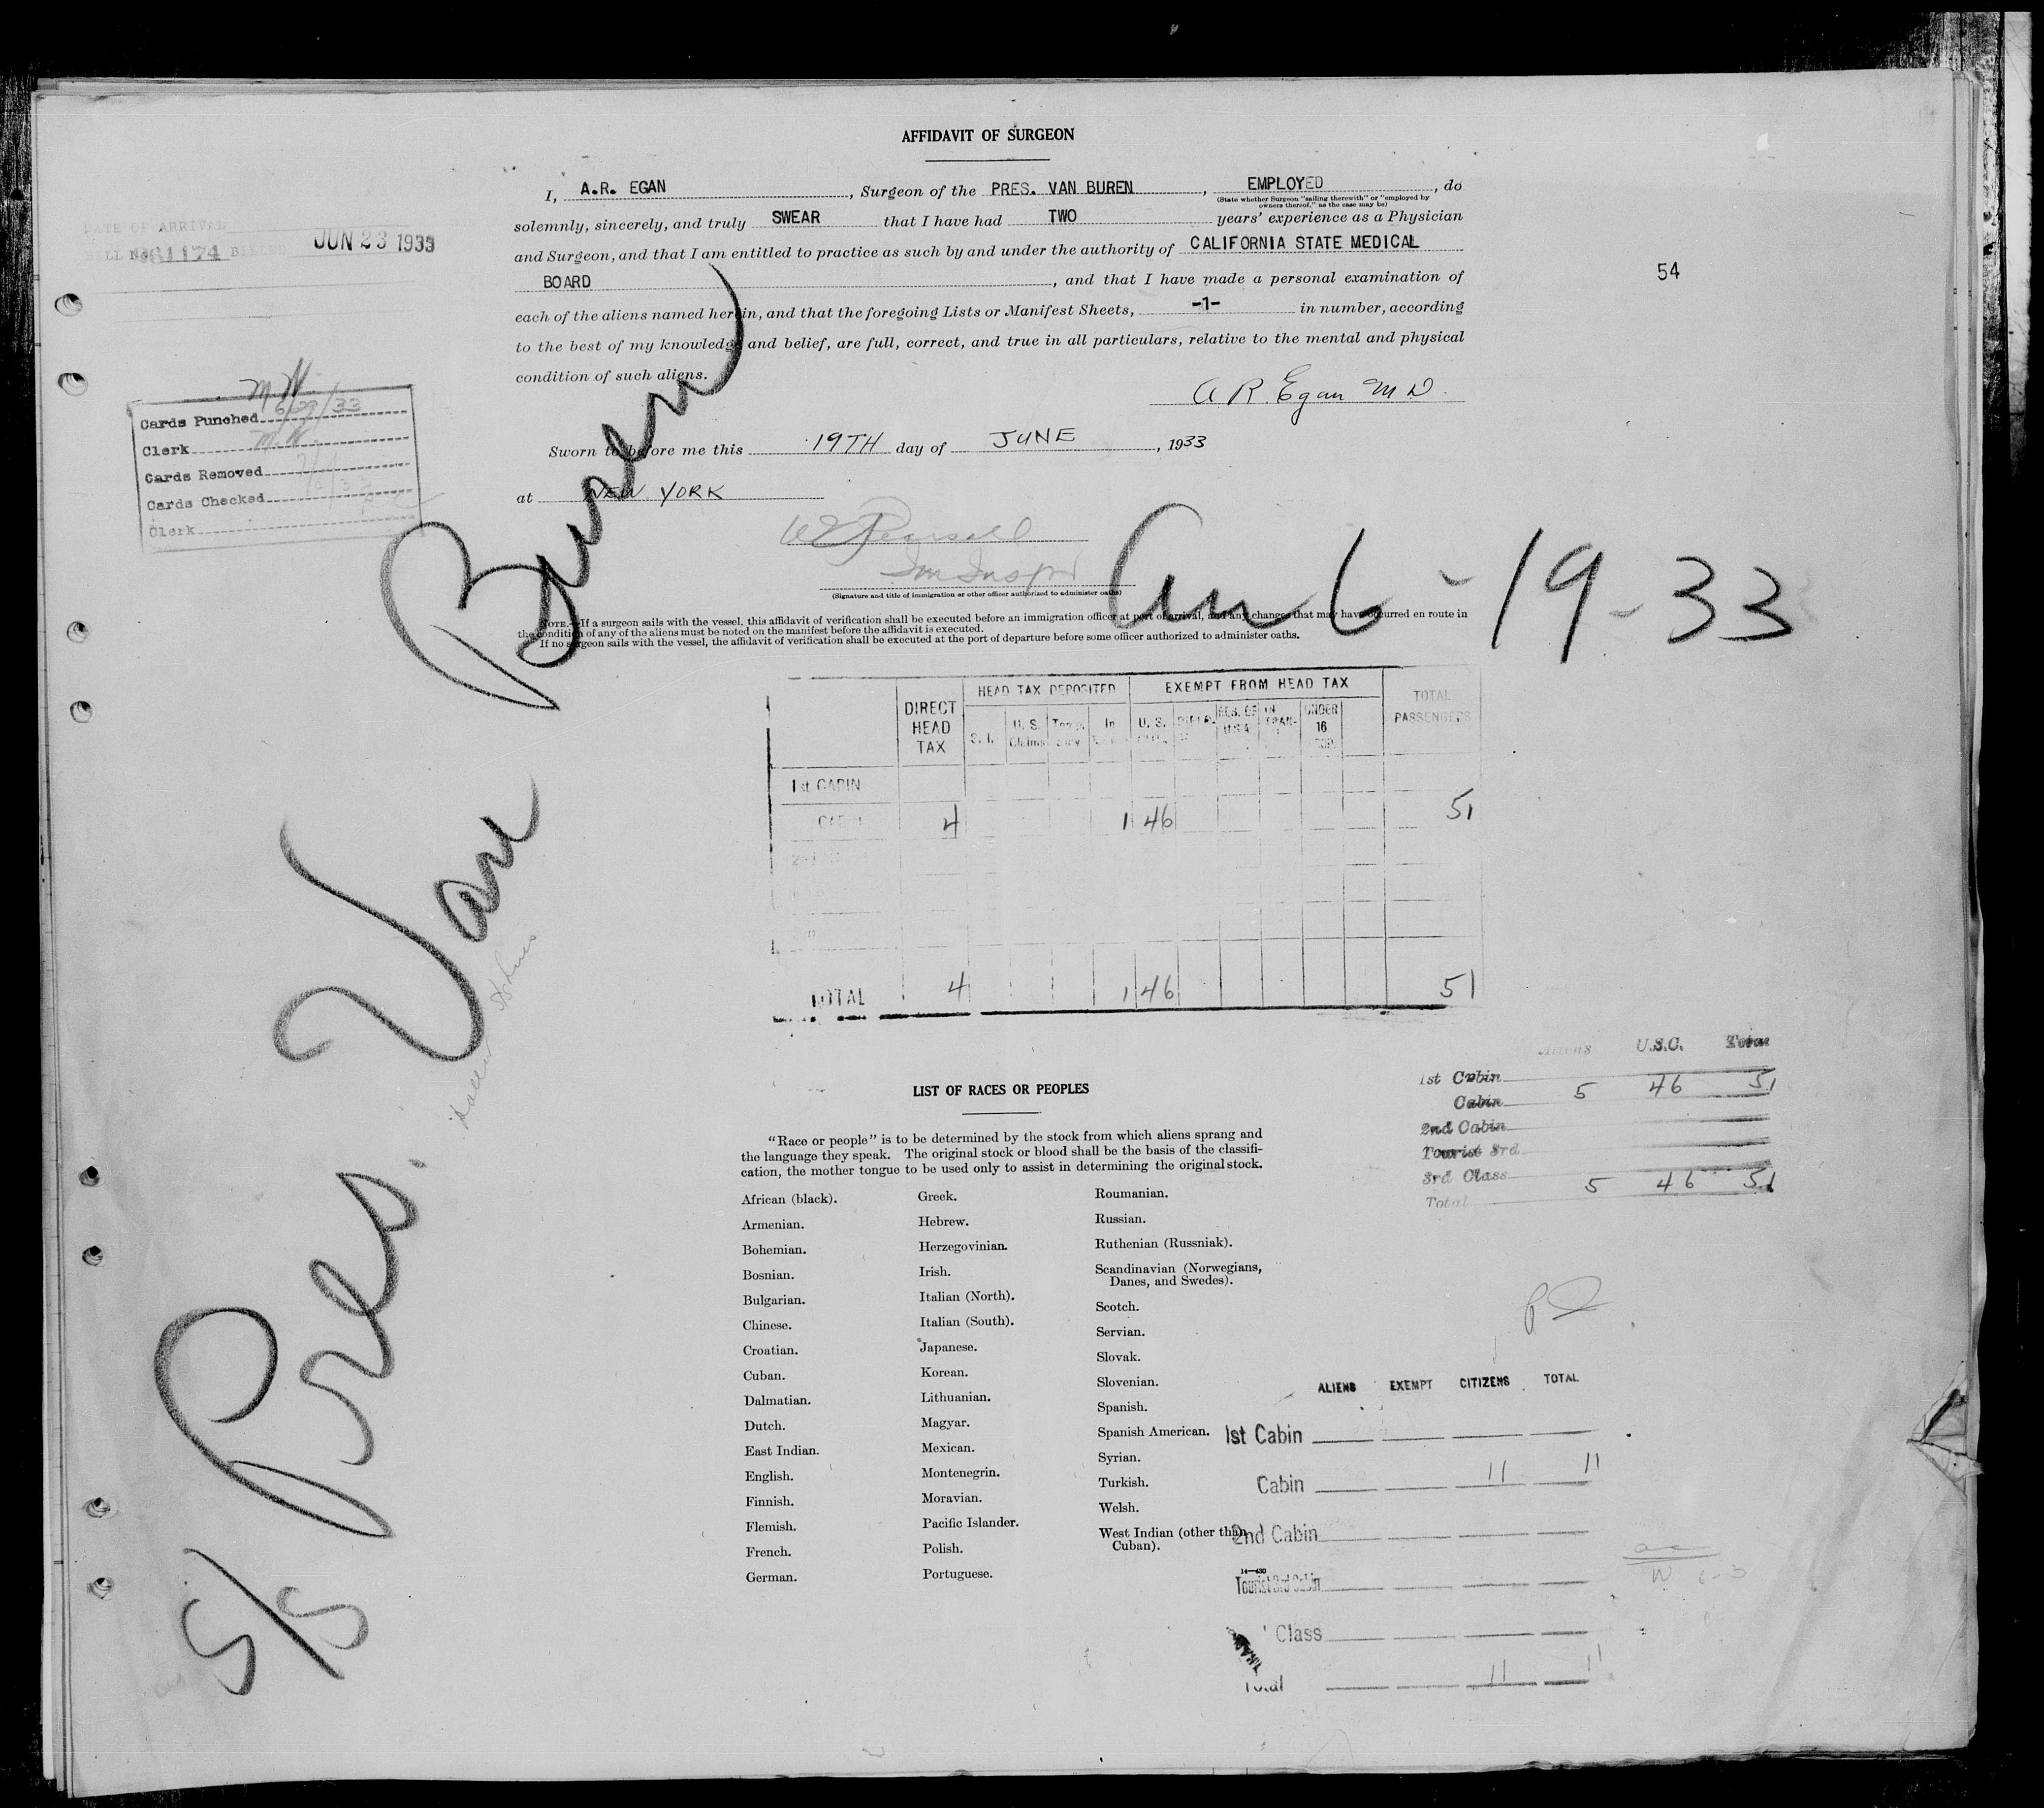 AFFIDAVIT OF SURGEON
I, A.R. EGAN, Surgeon of the PRES. VAN BUREN, EMPLOYED, do
(State whether Surgeon "sailing therewith" or "employed by
owners thereof," as the case may be)
solemnly, sincerely, and truly SWEAR that I have had TWO years' experience as a Physician
and Surgeon, and that I am entitled to practice as such by and under the authority of CALIFORNIA STATE MEDICAL
BOARD, and that I have made a personal examination of
each of the aliens named herein, and that the foregoing Lists or Manifest Sheets, -1- in number, according
to the best of my knowledge and belief, are full, correct, and true in all particulars, relative to the mental and physical
condition of such aliens.
A R. Egan M D.
Sworn to before me this 19TH day of JUNE, 1933
at NEW YORK
W E Pearsall
Im Inspr
(Signature and title of immigration or other officer authorized to administer oaths)
NOTE.—If a surgeon sails with the vessel, this affidavit of verification shall be executed before an immigration officer at port of arrival, and any changes that may have occurred en route in
the condition of any of the aliens must be noted on the manifest before the affidavit is executed.
If no surgeon sails with the vessel, the affidavit of verification shall be executed at the port of departure before some officer authorized to administer oaths.
DATE OF ARRIVAL
BILL No. 361174 BILLED JUN 23 1933
54
M W
Cards Punched 6/29/33
Clerk M.W.
Cards Removed
Cards Checked
Clerk
S/S Pres. Van Buren
Arr 6-19-33
DIRECT HEAD TAX
HEAD TAX DEPOSITED
EXEMPT FROM HEAD TAX
TOTAL PASSENGERS
S. I. U. S. Claims In U. S. RES. OF U.S.A. UNDER 16
1st CABIN
CABIN 4 1 46 51
TOTAL 4 1 46 51
Aliens U.S.C. Total
1st Cabin
Cabin 5 46 51
2nd Cabin
Tourist 3rd
3rd Class
Total 5 46 51
LIST OF RACES OR PEOPLES
"Race or people" is to be determined by the stock from which aliens sprang and
the language they speak. The original stock or blood shall be the basis of the classifi-
cation, the mother tongue to be used only to assist in determining the original stock.
African (black).
Armenian.
Bohemian.
Bosnian.
Bulgarian.
Chinese.
Croatian.
Cuban.
Dalmatian.
Dutch.
East Indian.
English.
Finnish.
Flemish.
French.
German.
Greek.
Hebrew.
Herzegovinian.
Irish.
Italian (North).
Italian (South).
Japanese.
Korean.
Lithuanian.
Magyar.
Mexican.
Montenegrin.
Moravian.
Pacific Islander.
Polish.
Portuguese.
Roumanian.
Russian.
Ruthenian (Russniak).
Scandinavian (Norwegians,
Danes, and Swedes).
Scotch.
Servian.
Slovak.
Slovenian.
Spanish.
Spanish American.
Syrian.
Turkish.
Welsh.
West Indian (other than
Cuban).
14—430
ALIENS EXEMPT CITIZENS TOTAL
1st Cabin
Cabin 11 11
2nd Cabin
Tourist 3rd Cabin
Class
Total 11 11